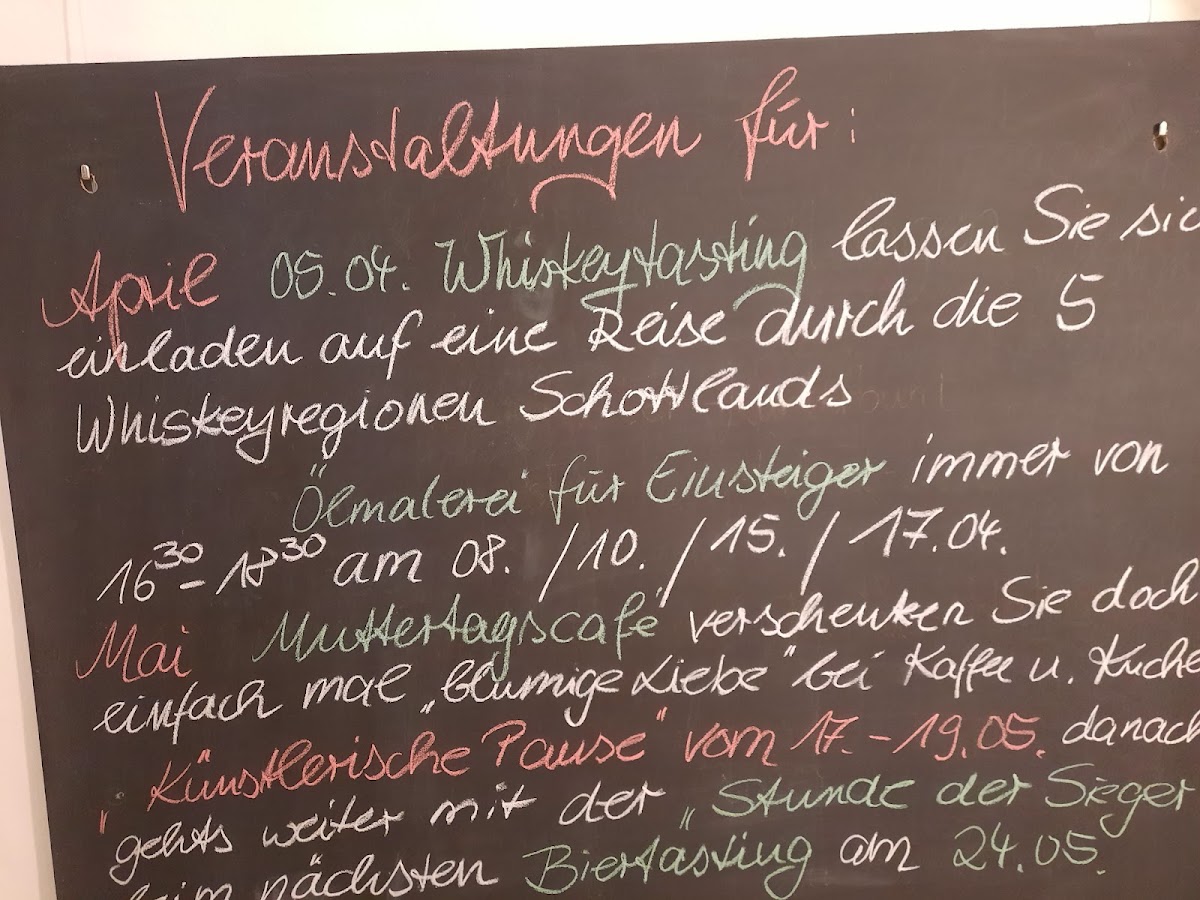 Veranstaltungen für:
April 05.04. Whiskeytasting lassen Sie sic
einladen auf eine Reise durch die 5
Whiskeyregionen Schottlands
Ölmalerei für Einsteiger immer von
16³⁰-18³⁰ am 08. /10. /15. /17.04.
Mai Muttertagscafé verschenken Sie doch
einfach mal „blumige Liebe" bei Kaffee u. Kuche
"Künstlerische Pause" vom 17.-19.05. danach
gehts weiter mit der „Stunde der Sieger
beim nächsten Biertasting am 24.05.